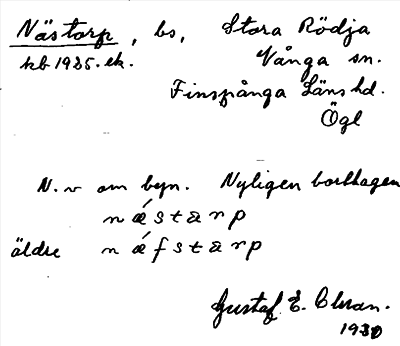 Nästorp, bs, Stora Rödja
kb 1925. ek. Vånga sn.
Finspånga Läns hd.
Ögl
N. v om byn. Nyligen borthagen
n ǽ s t a r p
äldre n ǽ f s t a r p
Gustaf E. Clsran.
1930